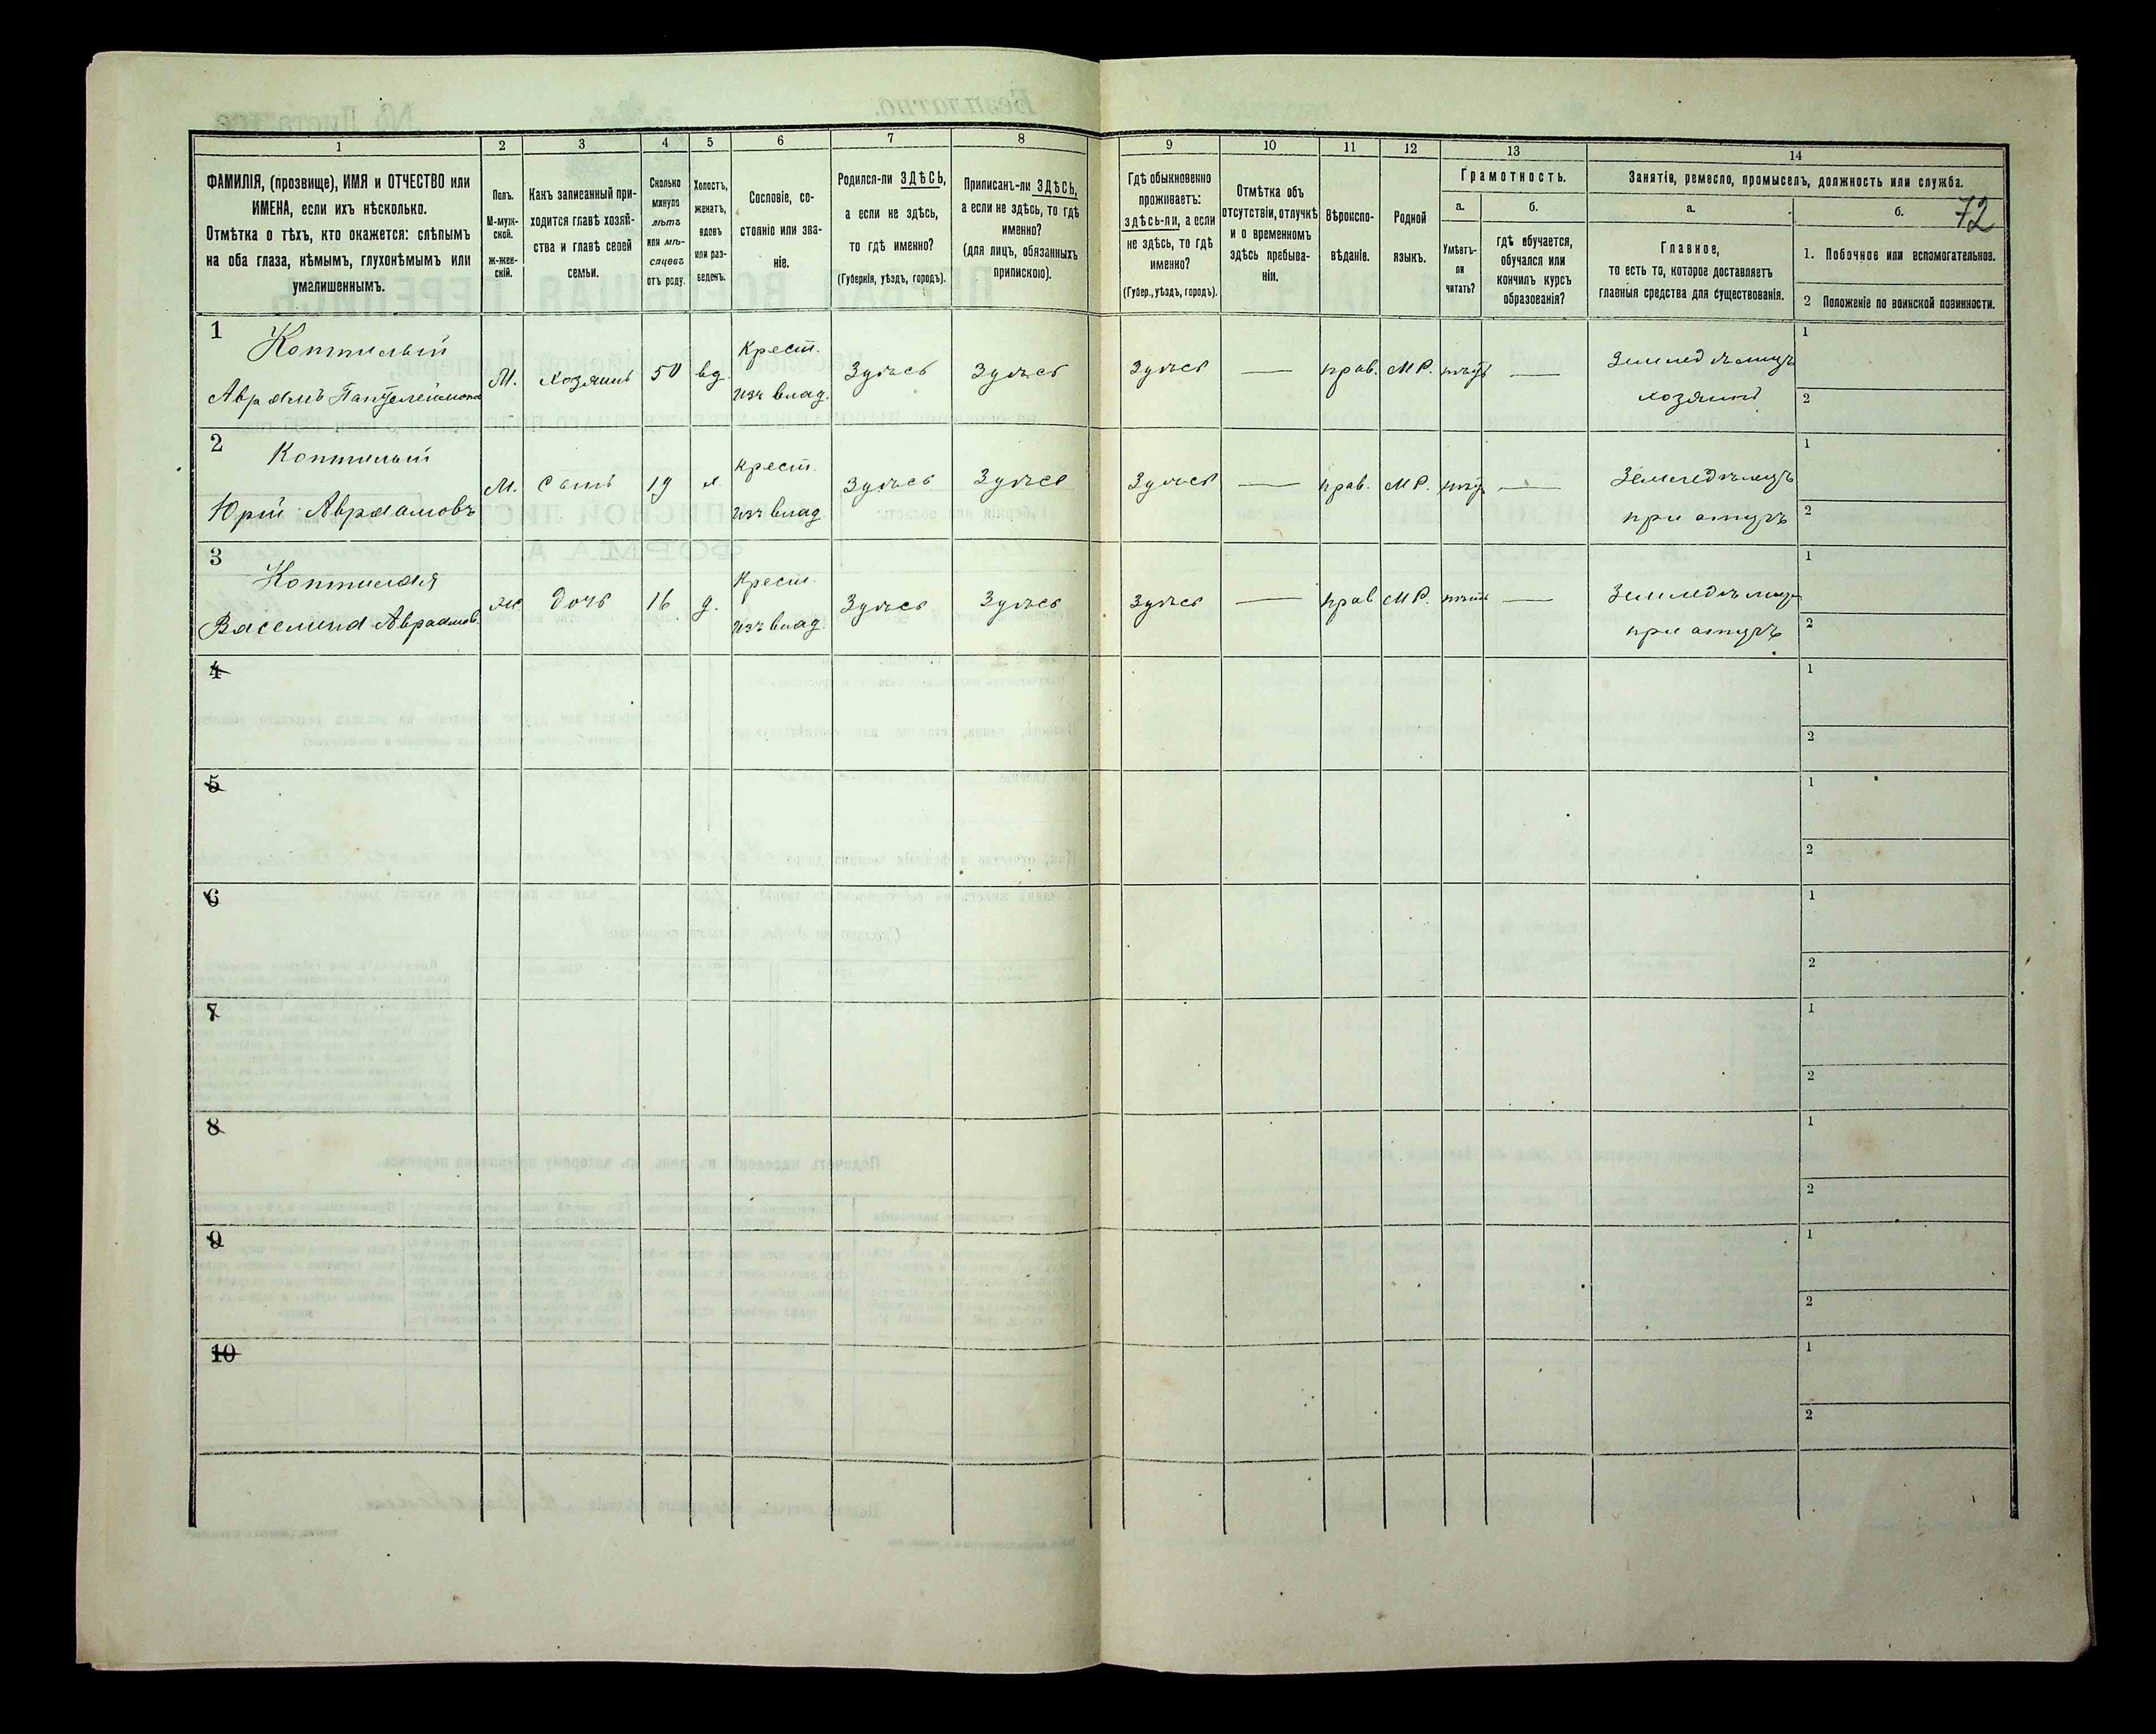 72
1 2 3 4 5 6 7 8 9 10 11 12 13 14
ФАМИЛІЯ, (прозвище), ИМЯ и ОТЧЕСТВО или
ИМЕНА, если ихъ нѣсколько.
Отмѣтка о тѣхъ, кто окажется: слѣпымъ
на оба глаза, нѣмымъ, глухонѣмымъ или
умалишеннымъ.
Полъ.
М-муж-
ской.
ж-жен-
скій.
Какъ записанный при-
ходится главѣ хозяй-
ства и главѣ своей
семьи.
Сколько
минуло
лѣтъ
или мѣ-
сяцевъ
отъ роду.
Холостъ,
женатъ,
вдовъ
или раз-
веденъ.
Сословіе, со-
стояніе или зва-
ніе.
Родился-ли ЗДѢСЬ,
а если не здѣсь,
то гдѣ именно?
(Губернія, уѣздъ, городъ).
Приписанъ-ли ЗДѢСЬ,
а если не здѣсь, то гдѣ
именно?
(для лицъ, обязанныхъ
припискою).
Гдѣ обыкновенно
проживаетъ:
здѣсь-ли, а если
не здѣсь, то гдѣ
именно?
(Губер., уѣздъ, городъ).
Отмѣтка объ
отсутствіи, отлучкѣ
и о временномъ
здѣсь пребыва-
ніи.
Вѣроиспо-
вѣданіе.
Родной
языкъ.
Грамотность.
а.
Умѣетъ-
ли
читать?
б.
гдѣ обучается,
обучался или
кончилъ курсъ
образованія?
Занятіе, ремесло, промыселъ, должность или служба.
а.
Главное,
то есть то, которое доставляетъ
главныя средства для существованія.
б.
1. Побочное или вспомогательное.
2 Положеніе по воинской повинности.
1
Коптилый
Аврамъ Пантелеймонов
М. хозяинъ 50 вд.
Крест.
изъ влад.
Здѣсь Здѣсь Здѣсь — прав. МР. нѣтъ —
Земледѣлецъ
хозяинъ
1
2
2
Коптилый
Юрій Аврамовъ
М. Сынъ 19 х.
крест.
изъ влад.
Здѣсь Здѣсь Здѣсь — прав. МР. нѣтъ —
Земледѣлецъ
при отцѣ
1
2
3
Коптилая
Василина Аврамов.
ж. дочь 16 д.
крест.
изъ влад.
Здѣсь Здѣсь Здѣсь — прав МР. нѣтъ —
при отцѣ
1
2
4
1
2
5
1
2
6
1
2
7
1
2
8
1
2
9
1
2
10
1
2